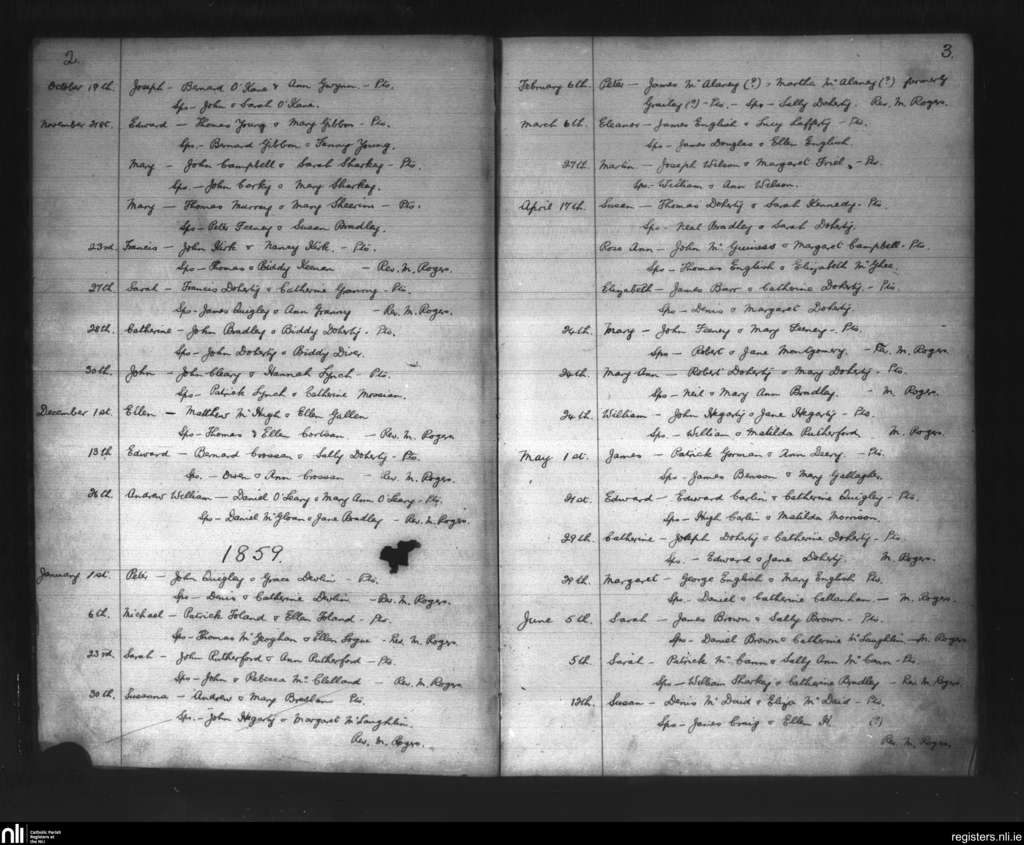 2.
October 19th. Joseph - Bernard O'Kane & Ann Gwynn. - Pts.
Sps - John & Sarah O'Kane.
November 21st. Edward - Thomas Young & Mary Gibbon - Pts.
Sps - Bernard Gibbon & Fanny Young.
Mary - John Campbell & Sarah Sharkey - Pts.
Sps - John Corky & Mary Sharkey.
Mary - Thomas Murray & Mary Sheerin - Pts.
Sps - Peter Feeney & Susan Bradley.
23rd. Francis - John Kirk & Nancy Kirk. - Pts.
Sps - Thomas & Biddy Keenan - Rev. M. Rogers.
27th. Sarah - Francis Doherty & Catherine - Pts.
Sps - James Quigley & Ann Granny - Rev. M. Rogers.
28th. Catherine - John Bradley & Biddy Doherty - Pts.
Sps - John Doherty & Biddy Diver.
30th. John - John Cleary & Hannah Lynch - Pts.
Sps - Patrick Lynch & Catherine
December 1st. Ellen - Matthew McHugh & Ellen Gallen
Sps - Thomas & Ellen - Rev. M. Rogers
13th Edward - Bernard Crossan & Sally Doherty - Pts.
Sps. - Owen & Ann Crossan - Rev. M. Rogers.
26th. Andrew William - Daniel O'Leary & Mary Ann O'Leary - Pts.
Sps - Daniel & Jane Bradley - Rev. M. Rogers.
1859.
January 1st. Peter - John Quigley & Grace Devlin - Pts.
Sps - Denis & Catherine Devlin - Rev. M. Rogers.
6th. Michael - Patrick Toland & Ellen Toland - Pts.
Sps - Thomas & Ellen Logue - Rev. M. Rogers
23rd. Sarah - John Rutherford & Ann Rutherford - Pts.
Sps - John & Rebecca McClelland - Rev. M. Rogers
30th. Susanna - Andrew & Mary Pts
Sps - John Hegarty & Margaret McLaughlin.
Rev. M. Rogers.
3.
February 6th. Peter - James McAlaney (?) & Martha McAlaney (?) formerly
(?) - Pts. - Sps - Sally Doherty. Rev. M. Rogers.
March 6th. Eleanor - James English & Lucy Lafferty - Pts.
Sps - James Douglas & Ellen English.
27th. Martin - Joseph Wilson & Margaret Friel. - Pts.
Sps - William & Ann Wilson.
April 17th. Susan - Thomas Doherty & Sarah Kennedy - Pts.
Sps - Neal Bradley & Sarah Doherty.
Rose Ann - John McGuiness & Margaret Campbell - Pts.
Sps - Thomas English & Elizabeth McGhee.
Elizabeth - James Barr & Catherine Doherty - Pts.
Sps - Denis & Margaret Doherty.
24th. Mary - John Feeney & Mary Feeney - Pts.
Sps - Robert & Jane Montgomery. - Rev. M. Rogers.
24th. Mary Ann - Robert Doherty & Mary Doherty - Pts.
Sps - Neil & Mary Ann Bradley. - M. Rogers.
24th. William - John Hegarty & Jane Hegarty - Pts.
Sps. - William & Matilda Rutherford M. Rogers.
May 1st. James - Patrick Gorman & Ann Deery. - Pts.
Sps - James Benson & Mary Gallagher.
21st. Edward - Edward Carlin & Catherine Quigley - Pts.
Sps - Hugh Carlin & Matilda Morrison.
29th. Catherine - Joseph Doherty & Catherine Doherty - Pts.
Sps. - Edward & Jane Doherty. M. Rogers.
29th. Margaret - George English & Mary English Pts.
Sps - Daniel & Catherine Callanhan - M. Rogers.
June 5th. Sarah - James Brown & Sally Brown - Pts.
Sps - Daniel Brown & Catherine McLaughlin - M. Rogers
5th. Sarah - Patrick McCann & Sally Ann McCann - Pts
Sps - William Sharkey & Catherine Bradley - Rev. M. Rogers
12th. Susan - Denis McDaid & Eliza McDaid - Pts.
Sps - James Craig & Ellen H (?)
Rev. M. Rogers.
nli
Catholic Parish
Registers at
the NLI
registers.nli.ie